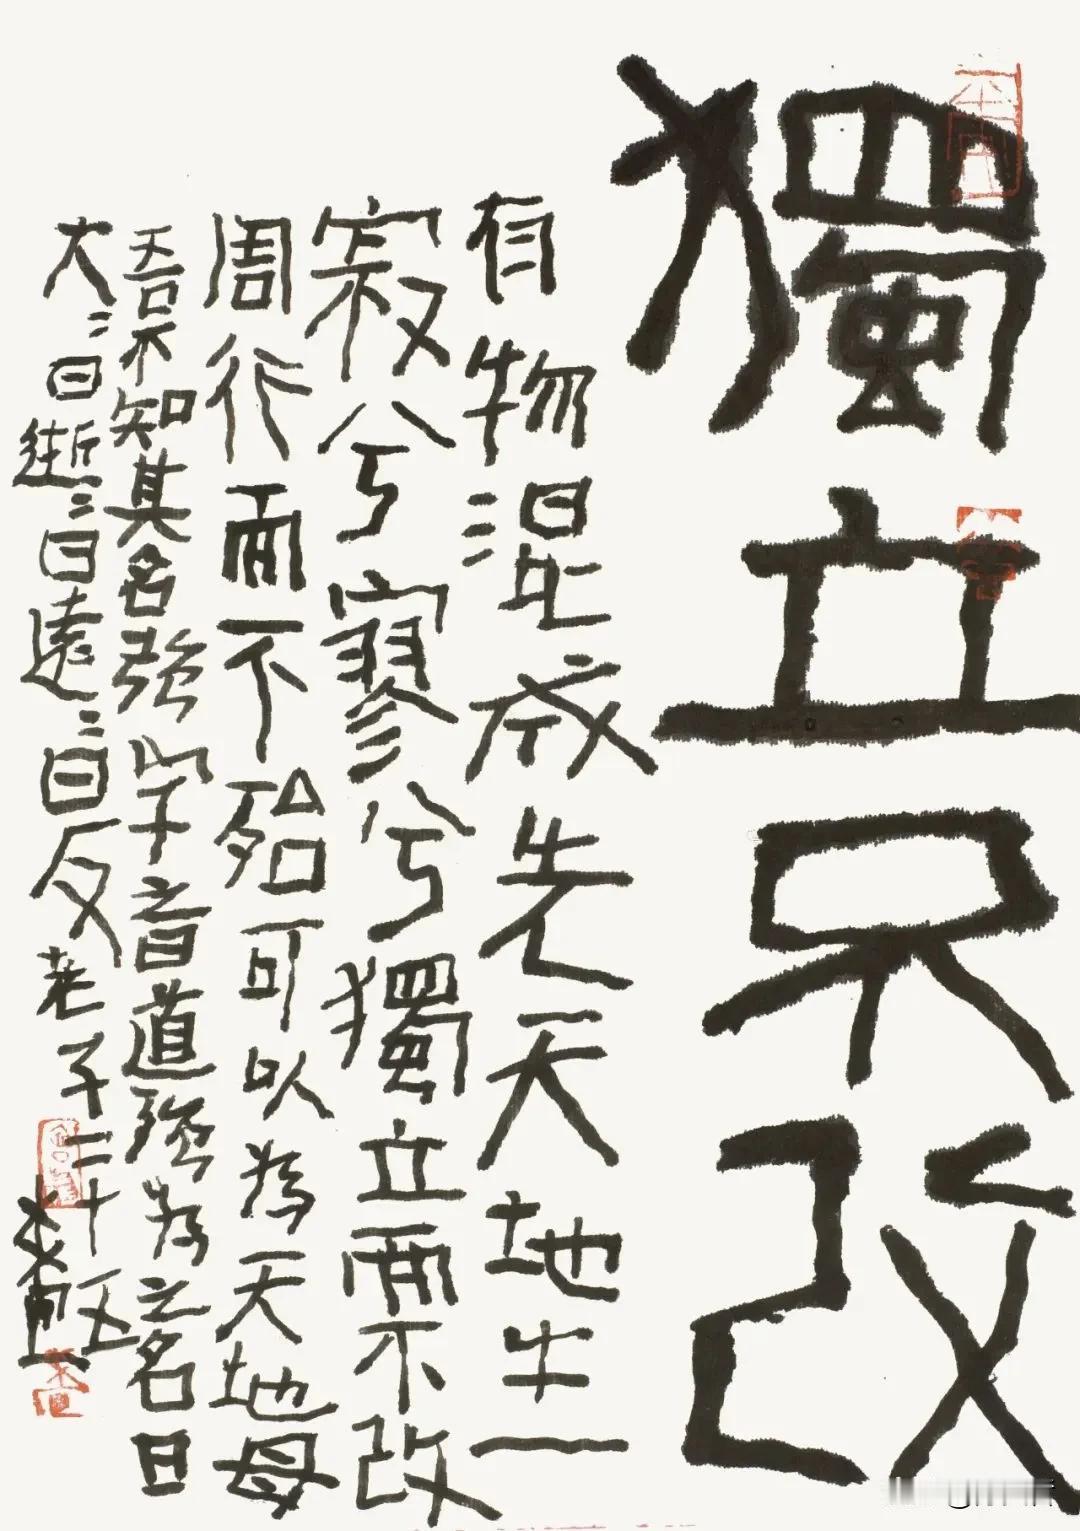 獨立不改
有物混成先天地生一
寂兮寥兮獨立而不改
周行而不殆可以為天地母
吾不知其名強字之曰道強為之名曰
大〻曰逝〻曰遠〻曰反老子二十五